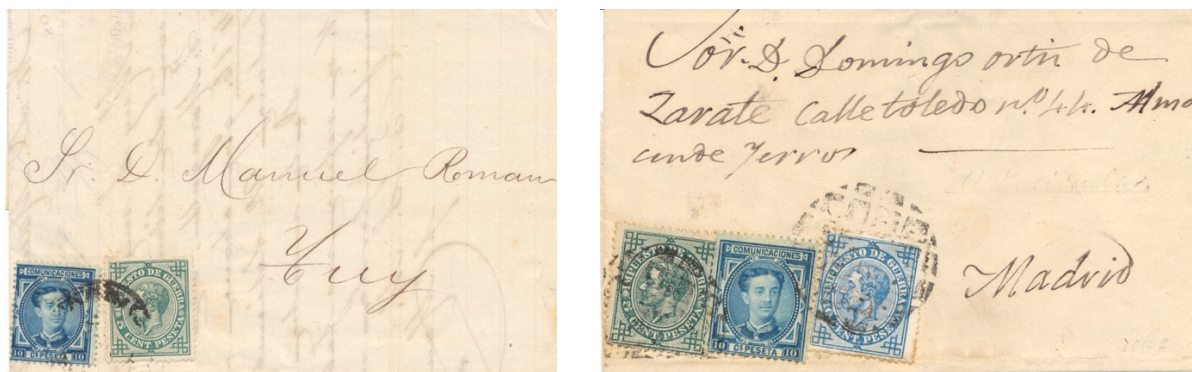 Sr. D. Manuel Roman
Tuy
COMUNICACIONES
10 Cs PESETA 10
ESTO DE GUERRA
5 CENT. PESETA
Sor. D. Domingo ortiz de
Zarate Calle toledo nº 44. Alma
cen de Yerros
Madrid
PUESTO DE
5 CENT PESETA
COMUNICACIONES
10 Cs PESETA 10
UESTO DE GUERRA
CENT. PESE